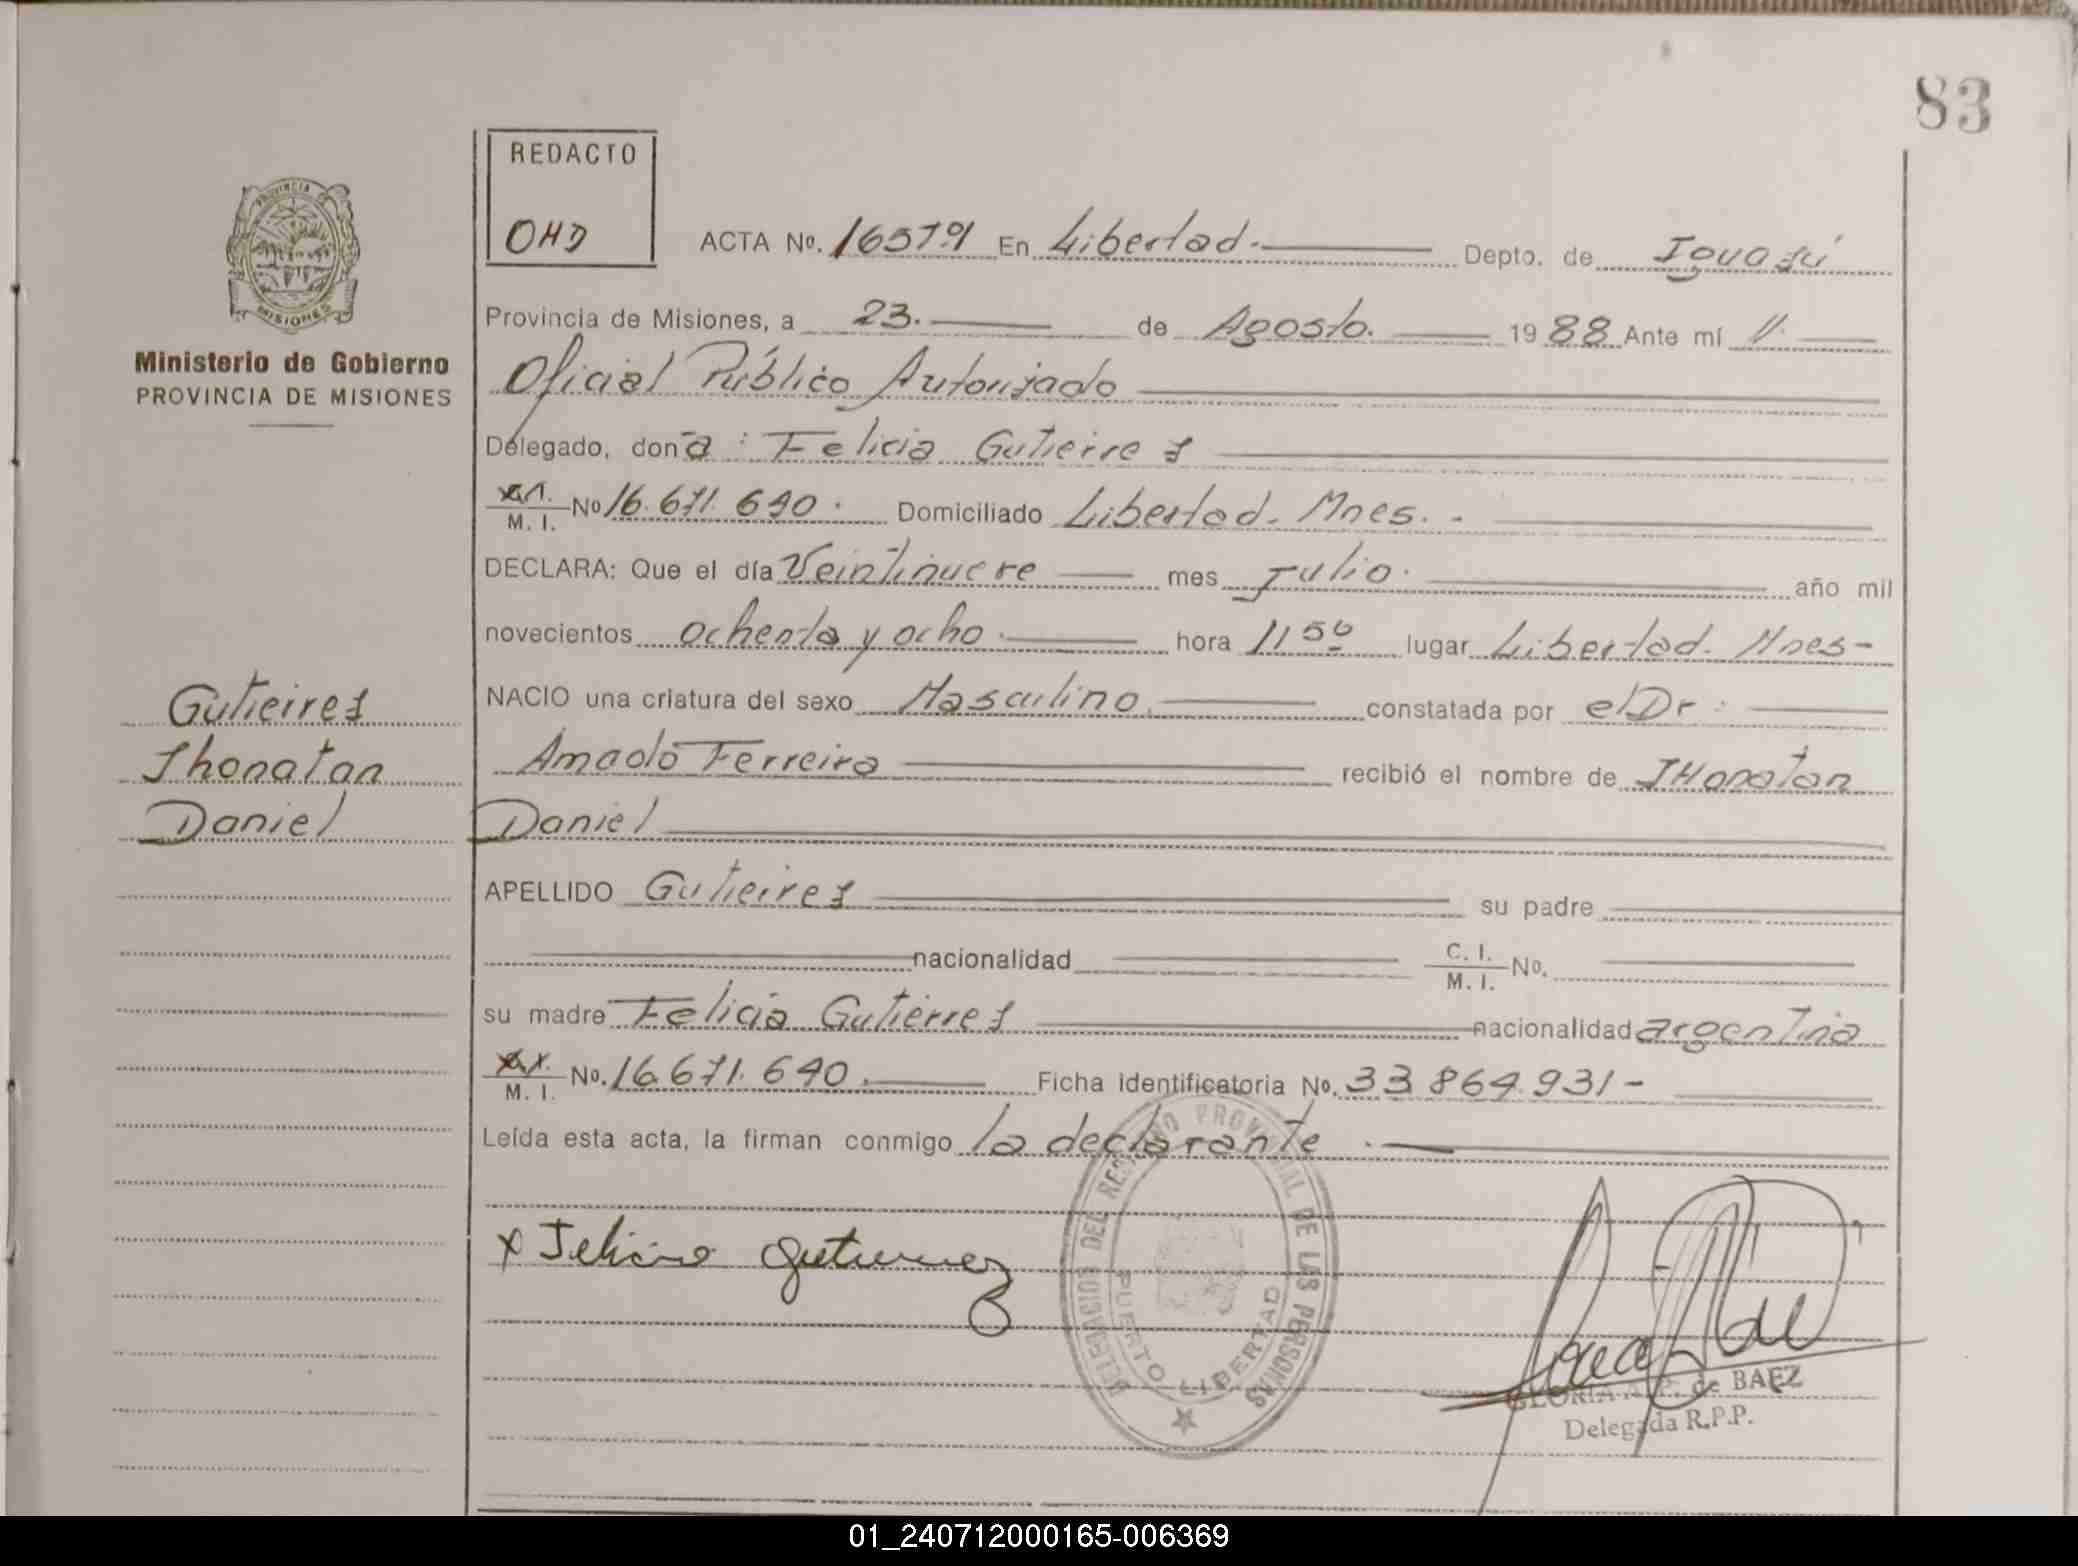 83
REDACTO
OHD
ACTA No. 165791 En Libertad. Depto. de Iguazú
PROVINCIA DE MISIONES
Provincia de Misiones, a 23. de Agosto. 1988 Ante mí
Ministerio de Gobierno
PROVINCIA DE MISIONES
Oficial Público Autorizado
Delegado, dona : Felicia Gutierrez
M. I. No 16.671.690. Domiciliado Libertad. Mnes.-
DECLARA: Que el día Veintinueve mes Julio. año mil
novecientos ochenta y ocho. hora 11 50 lugar Libertad. Mnes-
NACIO una criatura del sexo Masculino. constatada por el Dr:
Amado Ferreira recibió el nombre de JHonatan
Daniel
Gutieirrez
Jhonatan
Daniel
APELLIDO Gutieirez su padre
nacionalidad C. I. M. I. No.
su madre Felicia Gutierrez nacionalidad argentina
M. I. No. 16.671.690. Ficha identificatoria No. 33.864.931-
Leída esta acta, la firman conmigo la declarante.
x Felicia Gutierrez
DELEGACION DEL REGISTRO PROVINCIAL DE LAS PERSONAS
PUERTO LIBERTAD
GLORIA P. de BAEZ
Delegada R.P.P.
01_240712000165-006369